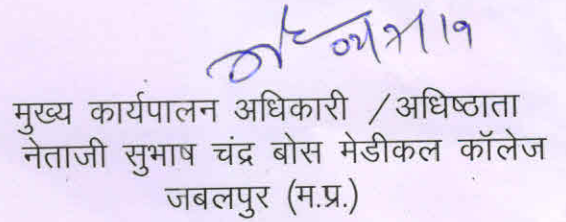 मुख्य कार्यपालन अधिकारी / अधिष्ठाता
नेताजी सुभाष चंद्र बोस मेडीकल कॉलेज
जबलपुर (म.प्र.)